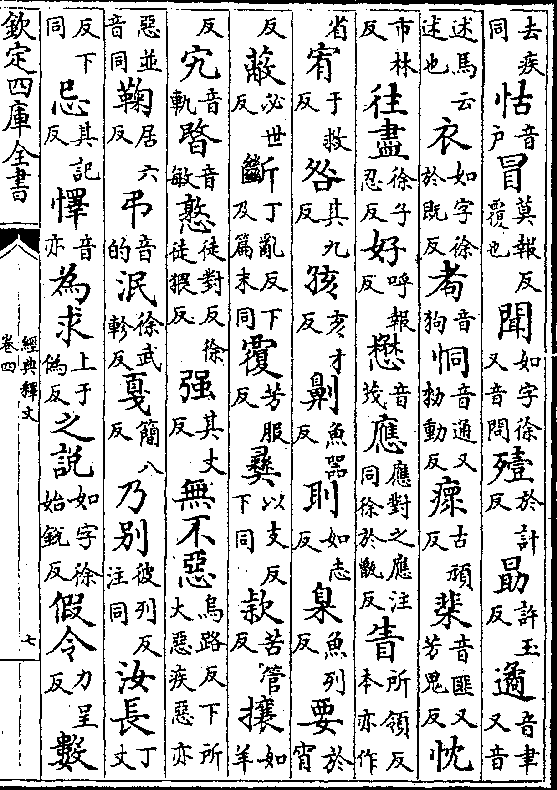 去疾同怙音户冒莫報反覆也聞如字徐又音問殪於計反勖許玉反遹音聿又音
述馬云述也衣如字徐於既反耇音狗恫音通又勑動反瘝古頑反棐音匪又芳鬼反忱
市林反往盡徐子忍反好呼報反懋音茂應應對之應注同徐於甑反眚所領反本亦作
省宥于救反咎其九反孩亥才反劓魚器反刵如志反臬魚列反要於宵
反蔽必世反斷丁亂反下及篇末同覆芳服反彝以支反下同款苦管反攘如羊
反宄音軌暋音敏憝徒對反徐徒猥反强其丈反無不惡烏路反下所大惡疾惡亦
惡並音同鞠居六反弔音的泯徐武軫反戛簡八反乃别彼列反注同汝長丁丈
反下同忌其記反懌音亦為求上于偽反之說如字徐始銳反假令力呈反數
欽定四庫全書
經典釋文
卷四
七